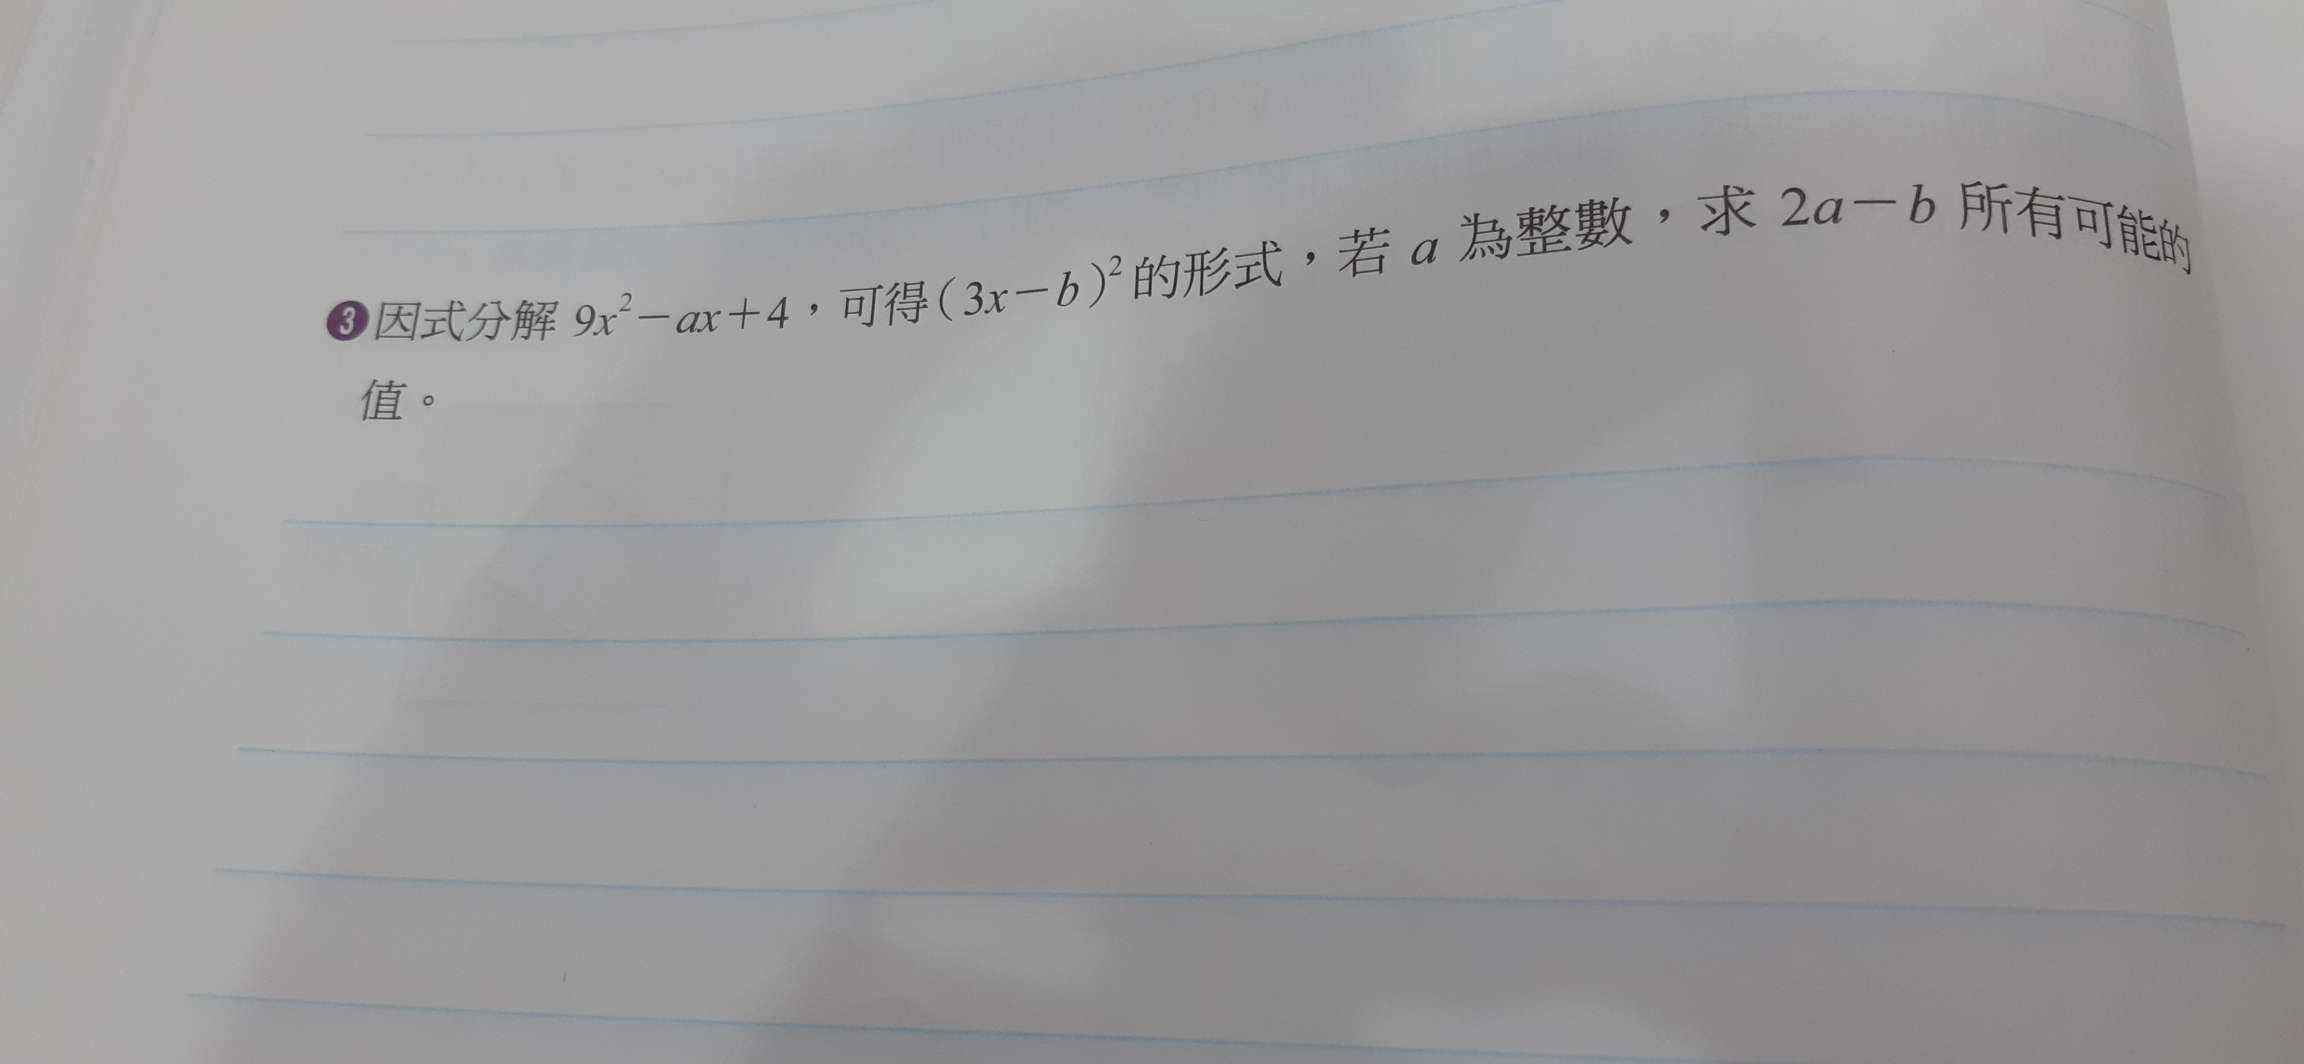 ❸因式分解 9x²－ax＋4，可得(3x－b)²的形式，若 a 為整數，求 2a－b 所有可能的
值。